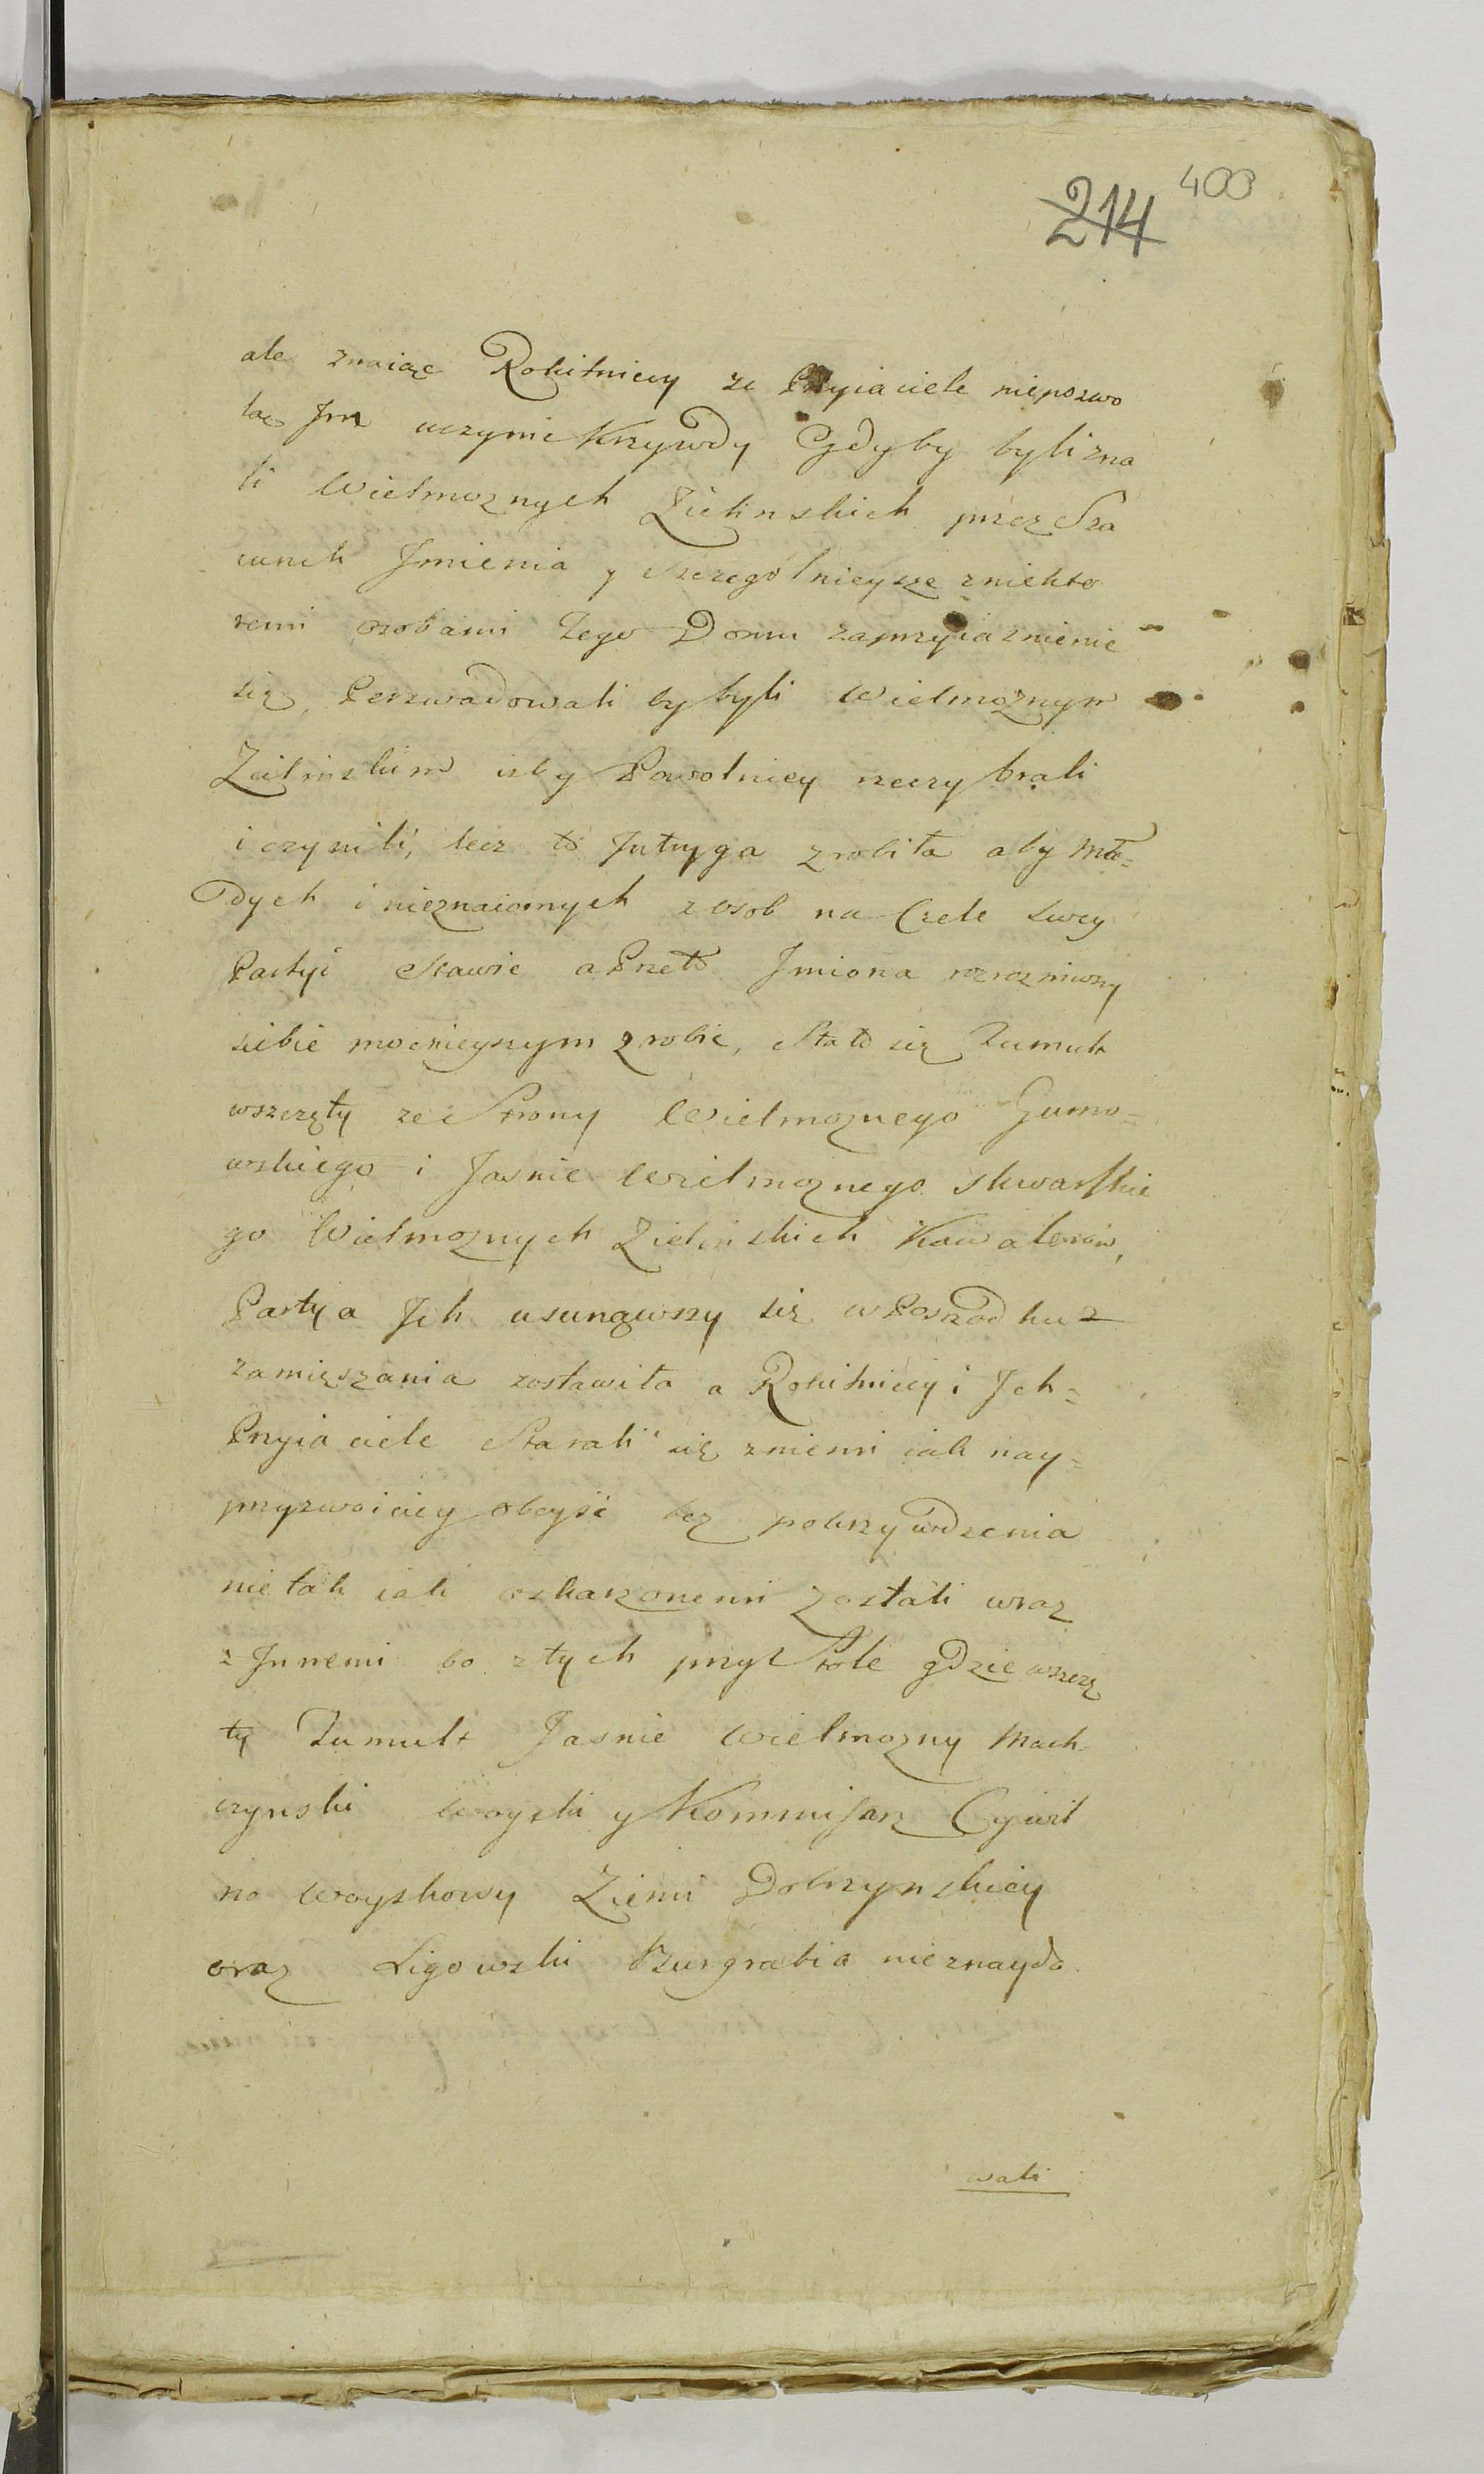 400
214
ale znaiąc Rokitnicy ze Przyiaciele niepozwo
lą Jm uczynic Krzywdy Gdyby byli zna
li Wielmoznych Zielinskich przez Sza
cunek Jmienia y szczegolnieysze zniekto
remi osobami Tego Domu zaprzyiaznienie
się, Perswadowali by byli Wielmoznym
Zielinskim izby Powolniey rzeczy brali
i czynili, lecz to Jntryga zrobiła aby Mło=
dych i nieznaiomych zosob na Czele swey
Partyi stawic a Przeto Jmiona rozrozniwszy
siebie mocnieyszym zrobic, Stało się Tumult
wszczęty ze Strony Wielmoznego Gumo=
wskiego i Jasnie Wielmoznego Skwarskie
go Wielmoznych Zielinskich Kawalerow,
Partya Jch usunąwszy się w Poszrodku
zamięszania zostawiła a Rokitnicy i Jch=
Przyiaciele Starali się zniemi iak nay=
przyzwoiciey obeysc bez pokrzywdzenia
nie tak iak oskarzonemi zostali wraz
z Jnnemi bo z tych przy Stole gdzie wszczę
ty Tumult Jasnie Wielmozny Mach=
czynski Woyski y Kommisarz Cywil
no Woyskowy Ziemi Dobrzynskiey
oraz Ligowski Burgrabia nieznaydo
wali